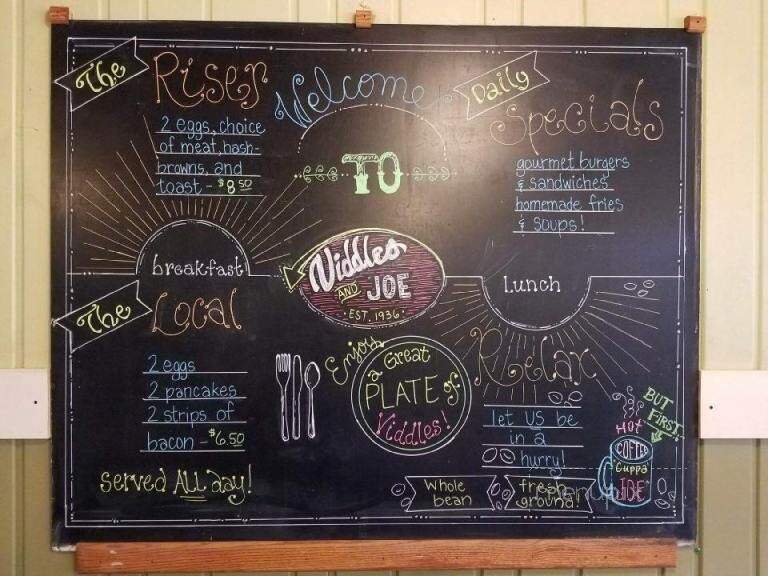 The Riser
2 eggs, choice
of meat, hash-
browns, and
toast - $8.50
Welcome
TO
Daily
Specials
gourmet burgers
& sandwiches
homemade fries
& soups!
breakfast
Viddles
AND JOE
EST. 1936
lunch
The Local
2 eggs
2 pancakes
2 strips of
bacon - $6.50
served ALL day!
Enjoy
a Great
PLATE of
Viddles!
Relax
let US be
in a
hurry!
BUT
FIRST,
HOT
COFFEE
Cuppa
JOE
whole
bean
fresh
ground!